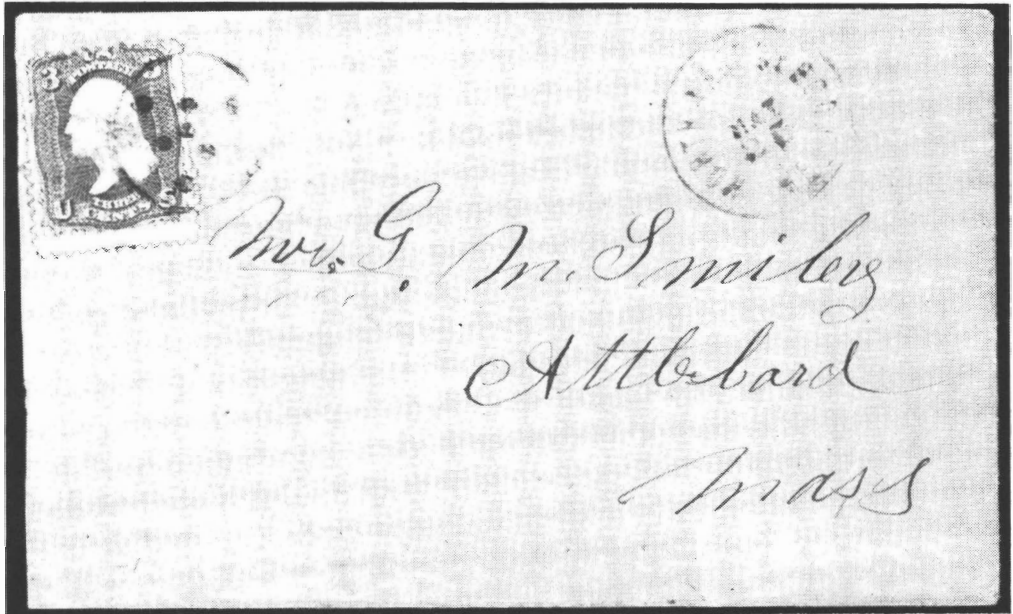 3 3
U THREE S
CENTS
Mr. G. M. Smiley
Attlebard
Mass